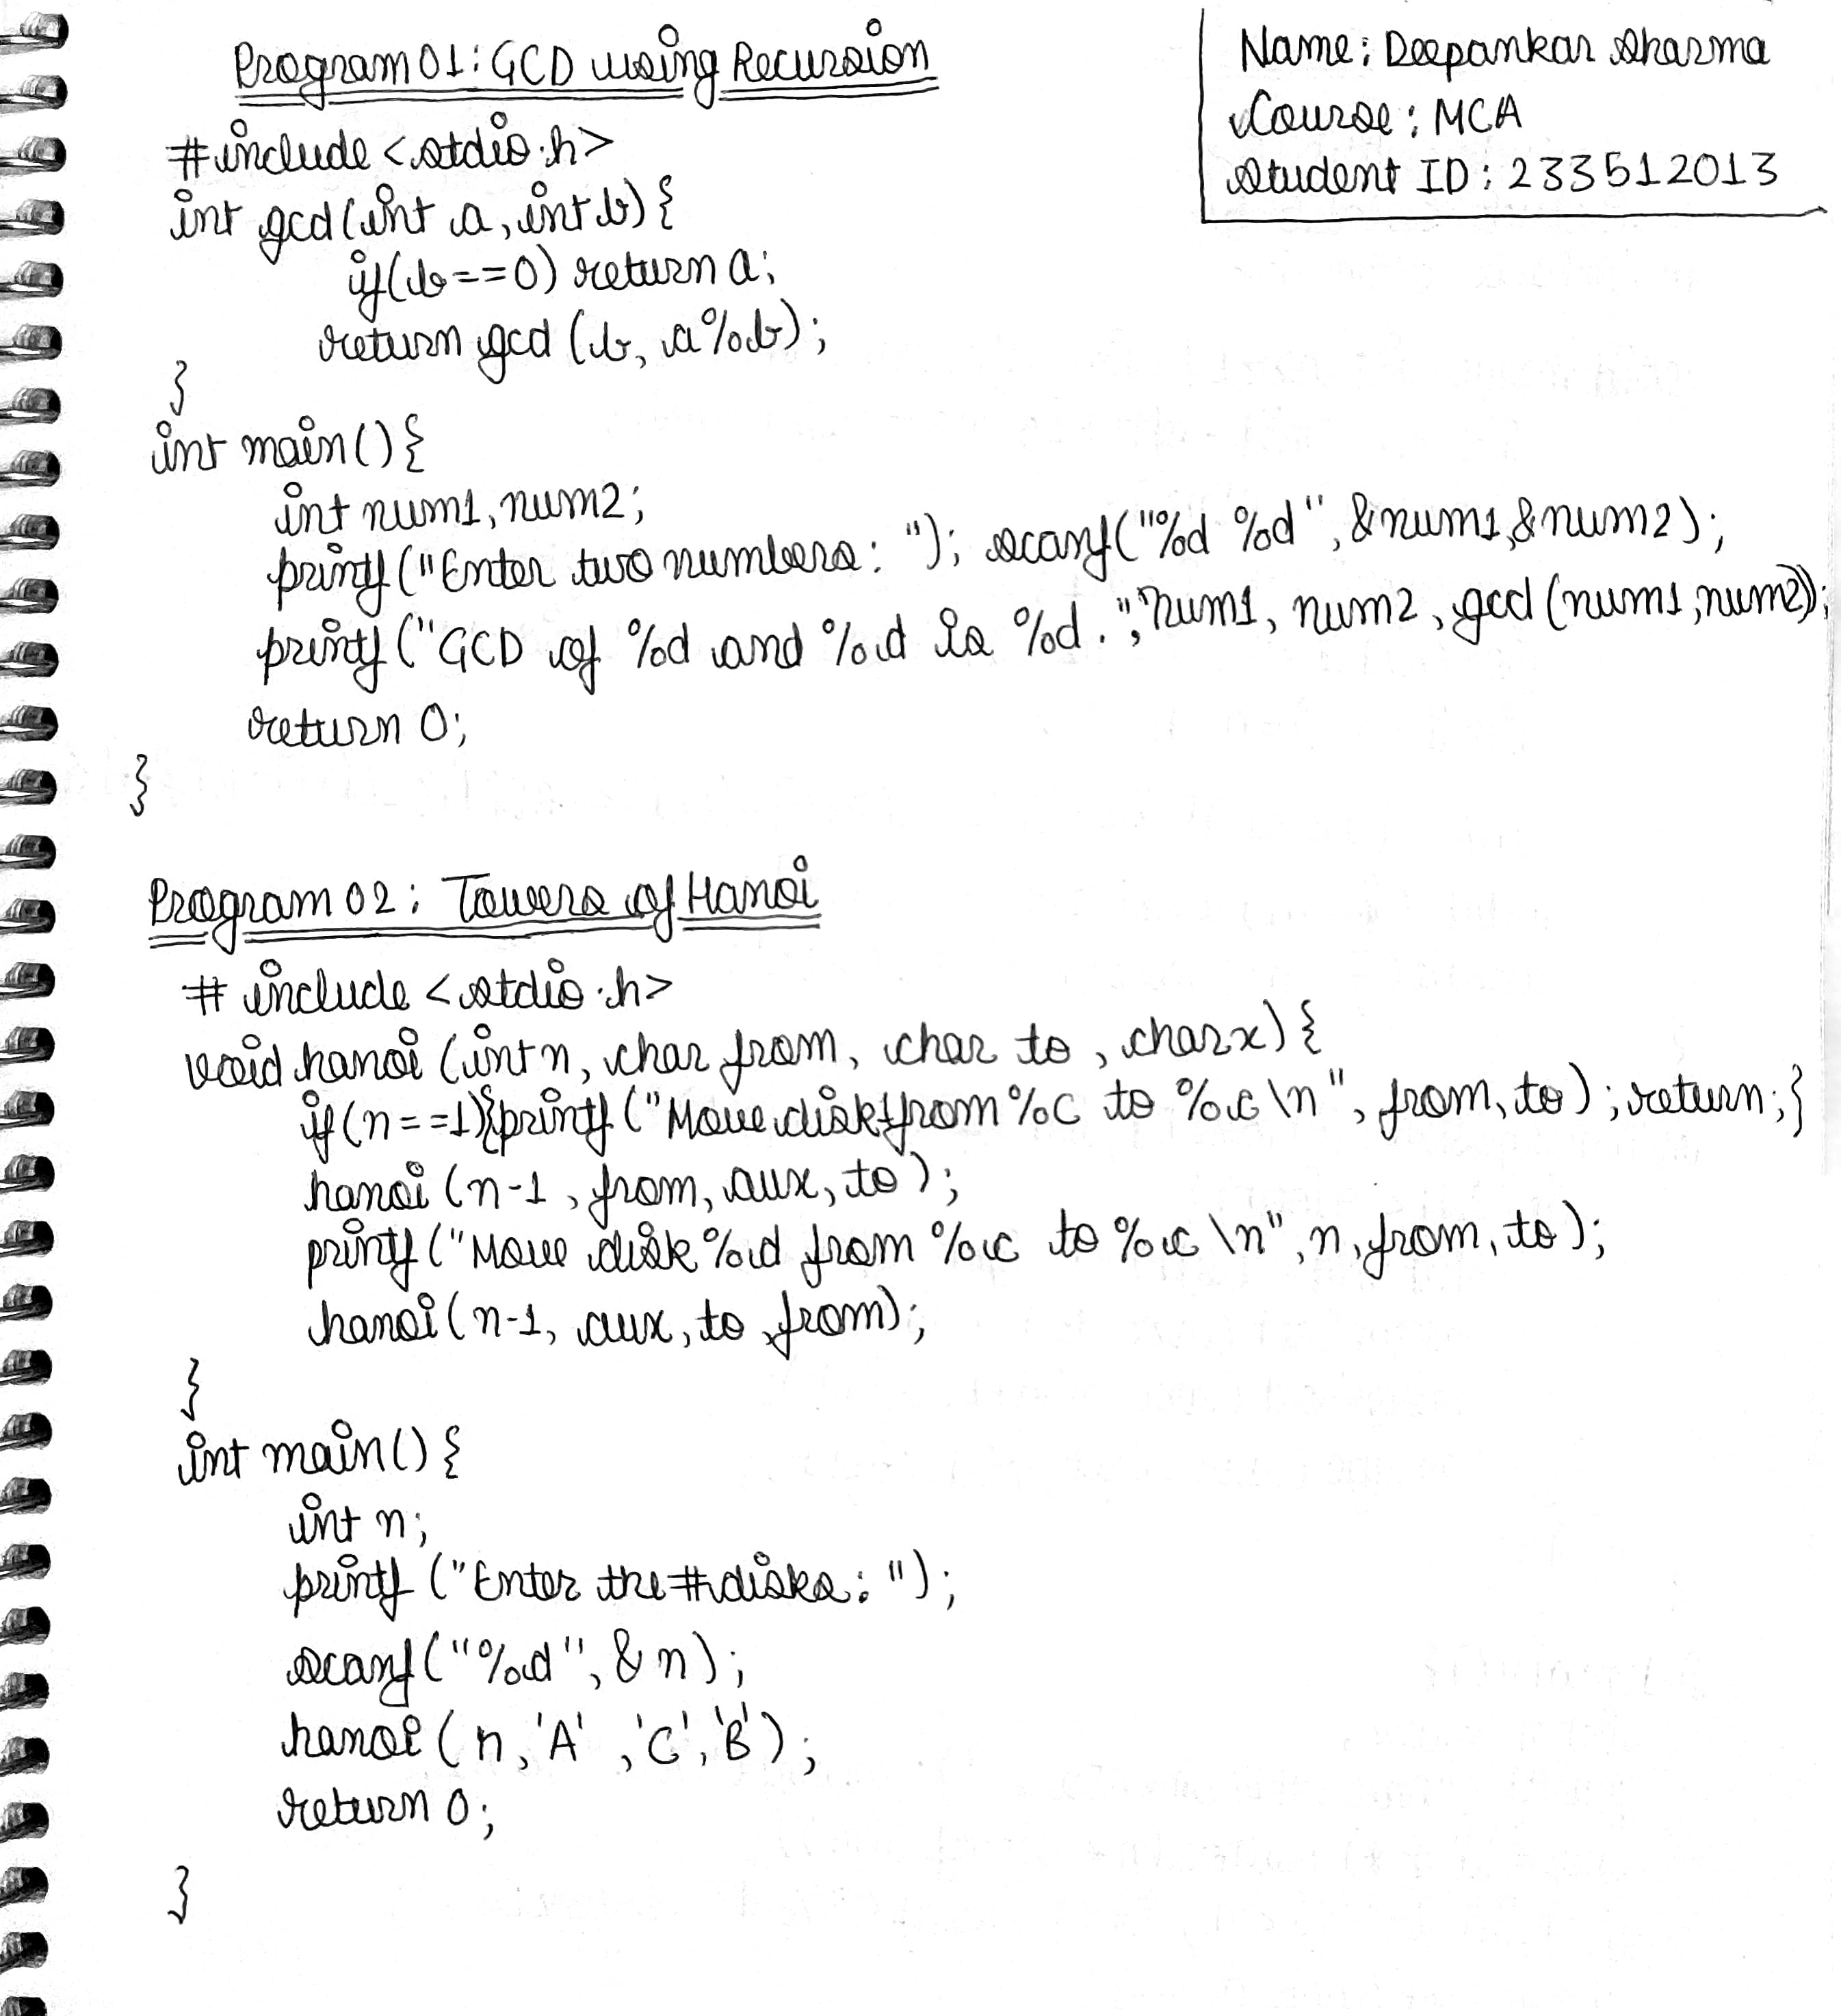 Program 01: GCD using Recursion
Name: Deepankar Sharma
Course: MCA
Student ID: 233512013
#include <stdio.h>
int gcd(int a, int b) {
if(b==0) return a;
return gcd (b, a%b);
}
int main() {
int num1, num2;
printf("Enter two numbers: "); scanf("%d %d", &num1, &num2);
printf("GCD of %d and %d is %d.", num1, num2, gcd(num1, num2));
return 0;
}
Program 02: Towers of Hanoi
# include <stdio.h>
void hanoi (int n, char from, char to, char x) {
if(n==1){printf("Move disk1from %c to %c \n", from, to); return;}
hanoi (n-1, from, aux, to);
printf("Move disk %d from %c to %c \n", n, from, to);
hanoi(n-1, aux, to, from);
}
int main() {
int n;
printf ("Enter the #disks: ");
scanf("%d", &n);
hanoi (n, 'A', 'C', 'B');
return 0;
}